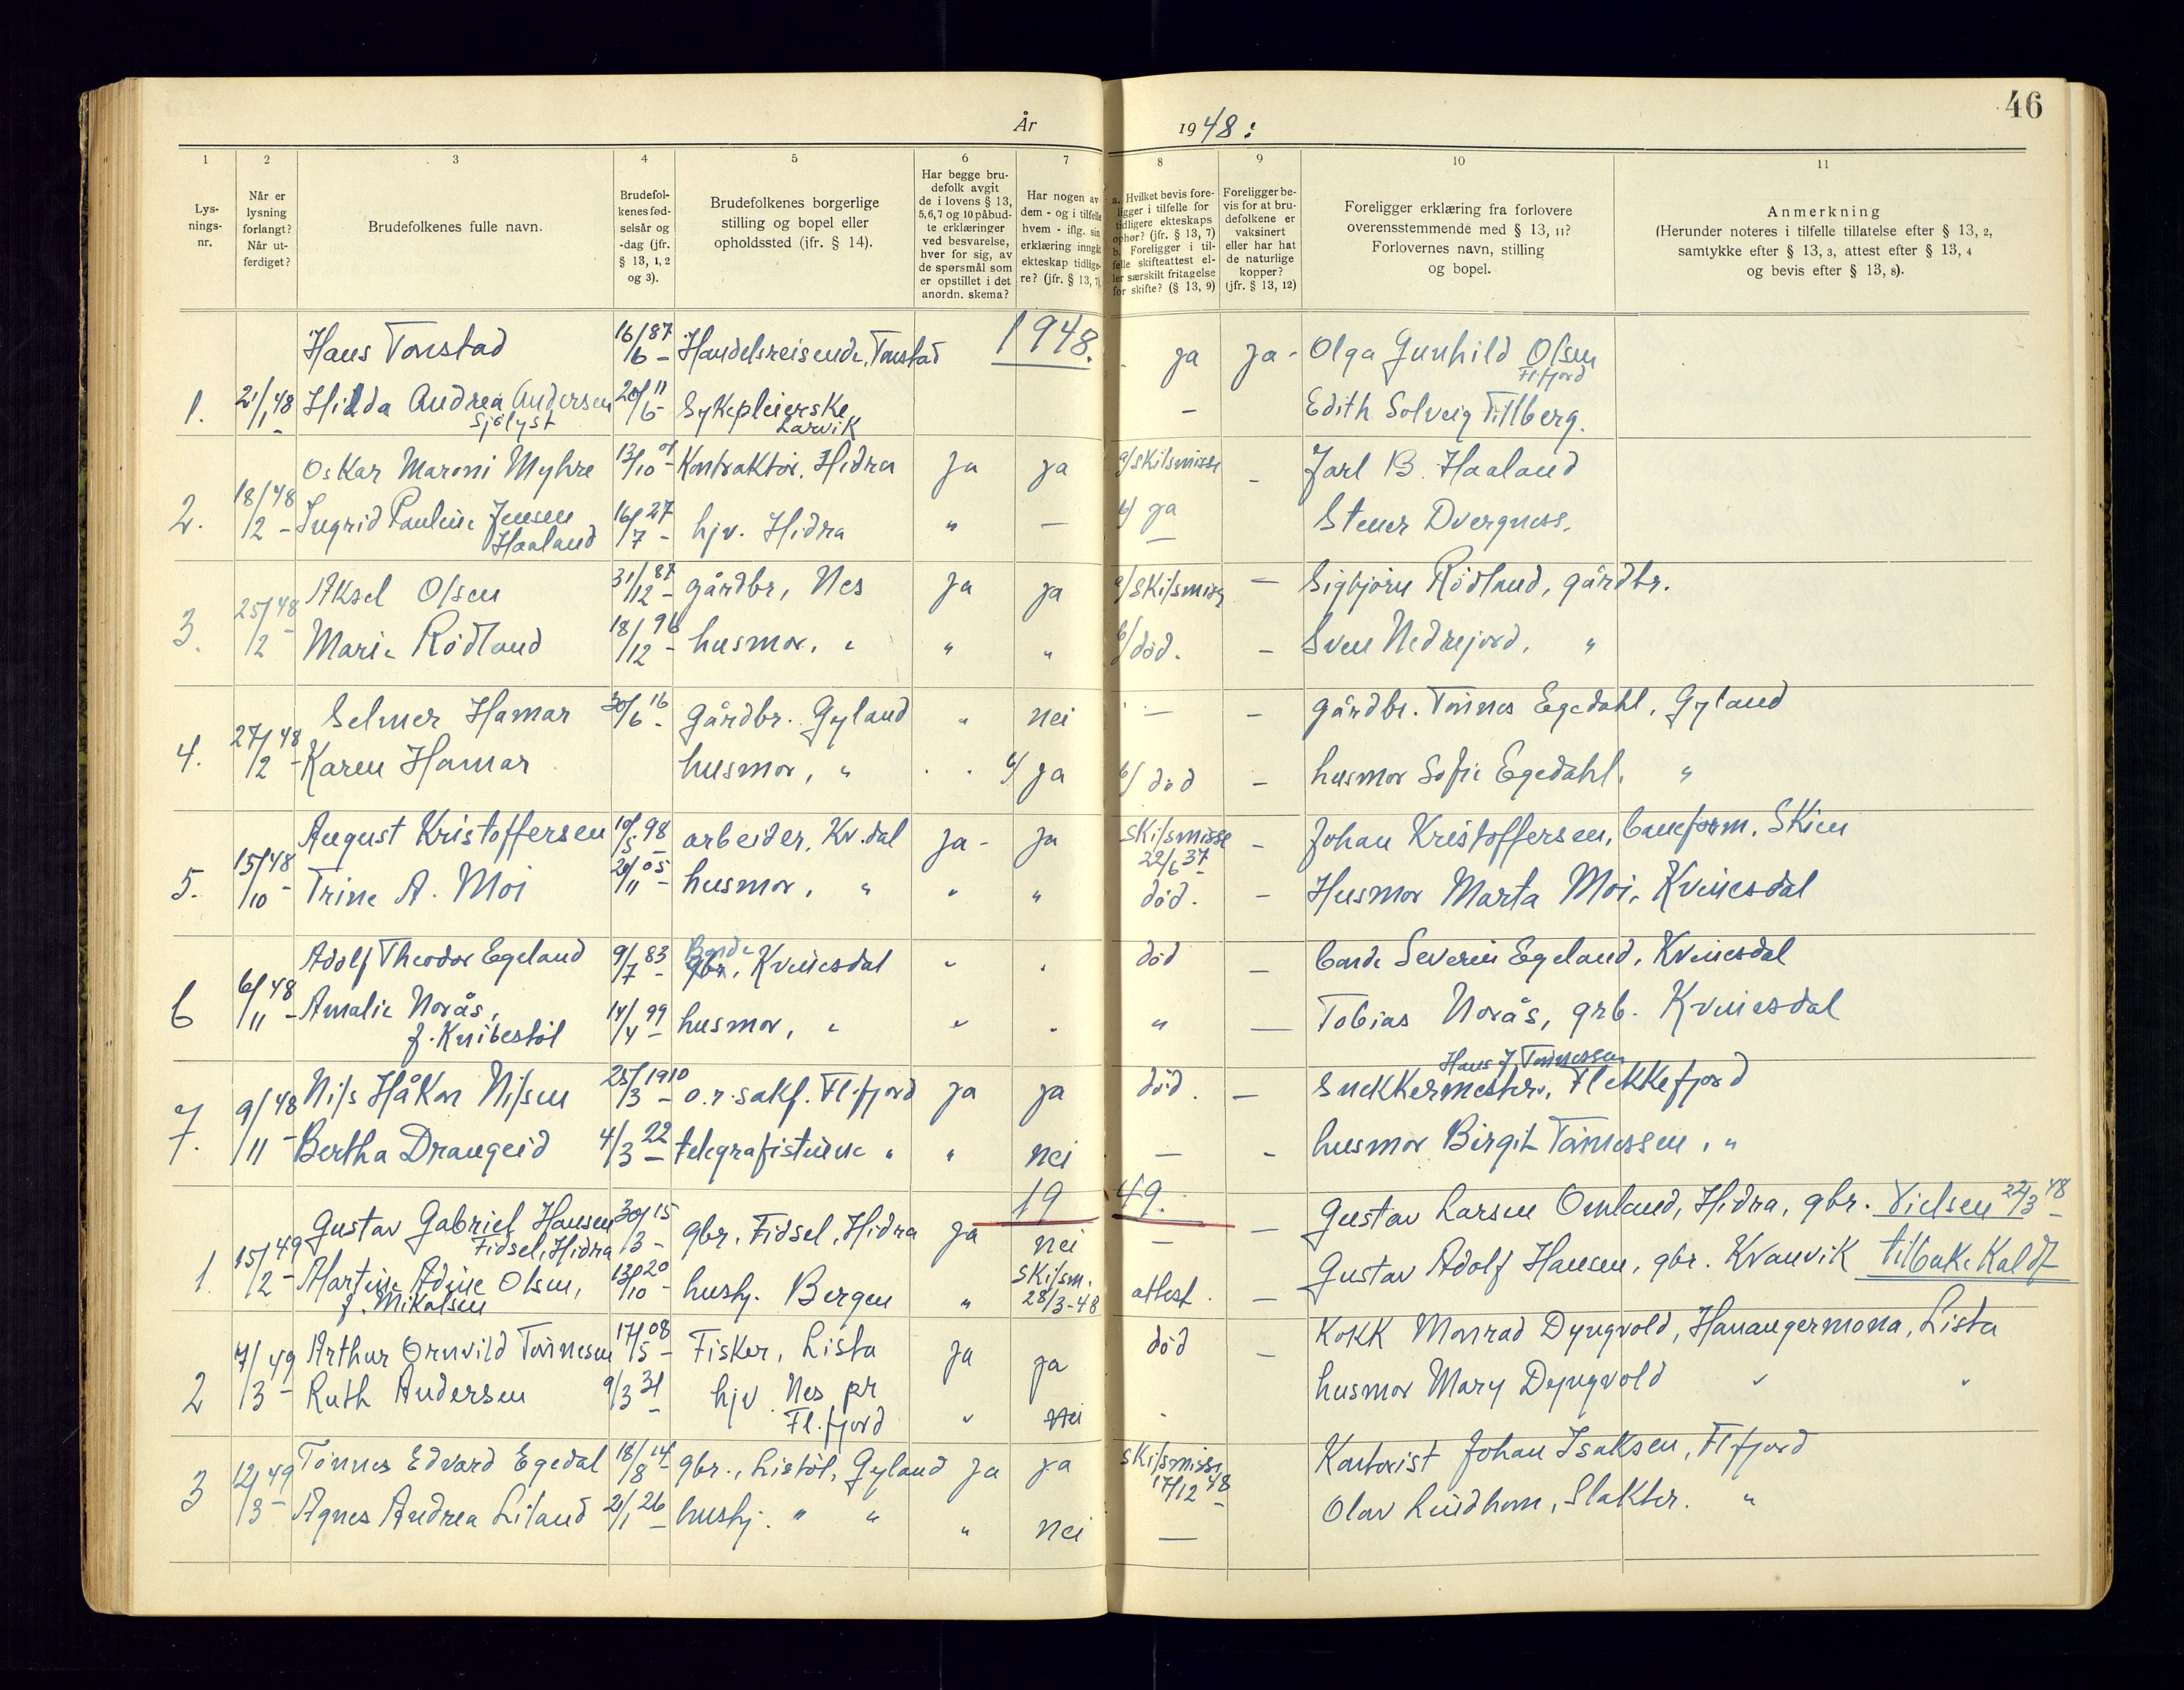 46
År 1948:
1 2 3 4 5 6 7 8 9 10 11
Lys-
nings-
nr.
Når er
lysning
forlangt?
Når ut-
ferdiget?
Brudefolkenes fulle navn.
Brudefol-
kenes fød-
selsår og
-dag (jfr.
§ 13, 1, 2
og 3).
Brudefolkenes borgerlige
stilling og bopel eller
opholdssted (jfr. § 14).
Har begge bru-
defolk avgit
de i lovens § 13,
5,6,7 og 10 påbud-
te erklæringer
ved besvarelse,
hver for sig, av
de spørsmål som
er opstillet i det
anordn. skema?
Har nogen av
dem - og i tilfelle
hvem - iflg. sin
erklæring inngåt
ekteskap tidlige-
re? (jfr. § 13, 7)
a. Hvilket bevis fore-
ligger i tilfelle for
tidligere ekteskaps
ophør? (jfr. § 13, 7)
b. Foreligger i til-
felle skifteattest el-
ler særskilt fritagelse
for skifte? (§ 13, 9)
Foreligger be-
vis for at bru-
defolkene er
vaksinert
eller har hat
de naturlige
kopper?
(jfr. § 13, 12)
Foreligger erklæring fra forlovere
overensstemmende med § 13, 11?
Forlovernes navn, stilling
og bopel.
Anmerkning
(Herunder noteres i tilfelle tillatelse efter § 13, 2,
samtykke efter § 13, 3, attest efter § 13, 4
og bevis efter § 13, 8).
1948.
Hans Tonstad 16/6 87 Handelsreisende, Tonstad ja ja - Olga Gunhild Olsen
Fl.fjord
1. 21/1 48 Hilda Andrea Andersen 20/6 11 Sykepleierske - Edith Solveig Tillberg.
Sjölyst Larvik
Oskar Maroni Myhre 13/10 01 Kontraktör. Hidra Ja ja a/ skilsmisse - Jarl B. Haaland
2. 18/2 48 Ingrid Pauline Jensen 16/7 27 hjv. Hidra " — b/ ja Stener Dvergness.
Haaland —
Aksel Olsen 31/12 87 gårdbr, Nes Ja ja a/ skilsmisse — Sigbjörn Rödland, gårdbr.
3. 25/2 48 Marie Rödland 18/12 96 husmor, " " " b/ död. - Sven Nedrejord, "
Selmer Hamar 30/6 16 Gårdbr. Gyland " nei — - gårdbr. Tönnes Egedahl, Gyland
4. 27/2 48 Karen Hamar husmor, " " a/ ja b/ död - husmor Sofie Egedahl. "
August Kristoffersen 10/5 98 arbeider, Kv.dal ja - ja skilsmisse 22/6 37 - Johan Kristoffersen, baneform. Skien
5. 15/10 48 Trine A. Moi 20/11 05 husmor, " " " död. - Husmor Marta Moi, Kvinesdal
Adolf Theodor Egeland 9/7 83 Bonde gbr, Kvinesdal " " död - bonde Severin Egeland, Kvinesdal
6 6/11 48 Amalie Norås, 14/4 99 husmor, " " " " — Tobias Norås, grb. Kvinesdal
f. Knibestöl
Hans J. Tönnessen
Nils Håkon Nilsen 25/3 1910 o.r.sakf. Fl.fjord ja ja död. - Snekkermester, Flekkefjord
7. 9/11 48 Bertha Drangeid 4/3 22 telegrafistinne " " nei — - husmor Birgit Tönnessen, "
19 49.
Gustav Gabriel Hansen 30/3 15 gbr. Fidsel, Hidra ja nei — - Gustav Larsen Omland, Hidra, gbr. Vielsen 22/3 48
Fidsel, Hidra
1. 15/2 49 Martine Adine Olsen, 13/10 20 hushj. Bergen " skilsm. 28/3-48 attest. - Gustav Adolf Hansen, gbr. Kvanvik tilbakekaldt
f. Mikalsen
Arthur Ornvild Tönnesen 17/5 08 Fisker, Lista ja ja död - Kokk Monrad Dyngvold, Hanangermona, Lista
2 7/3 49 Ruth Andersen 9/3 31 hjv. Nes pr Fl.fjord " nei - husmor Mary Dyngvold " "
Tönnes Edvard Egedal 18/8 14 gbr., Listöl, Gyland ja ja skilsmisse 17/12 48 Kontorist Johan Isaksen, Fl.fjord
3 12/3 49 Agnes Andrea Liland 21/1 26 hushj. " " " nei — Olav Lindhom, Slakter. "